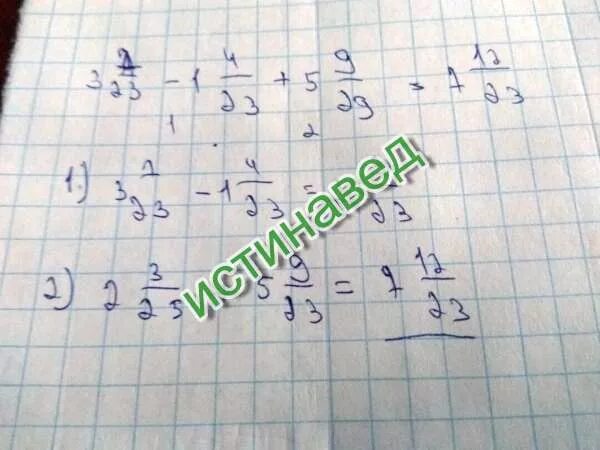 3 7/23 - 1 4/23 + 5 9/29 = 7 12/23
1 2
1.) 3 7/23 - 1 4/23 = /23
2) 2 3/25 5 9/23 = 7 12/23
истинавед